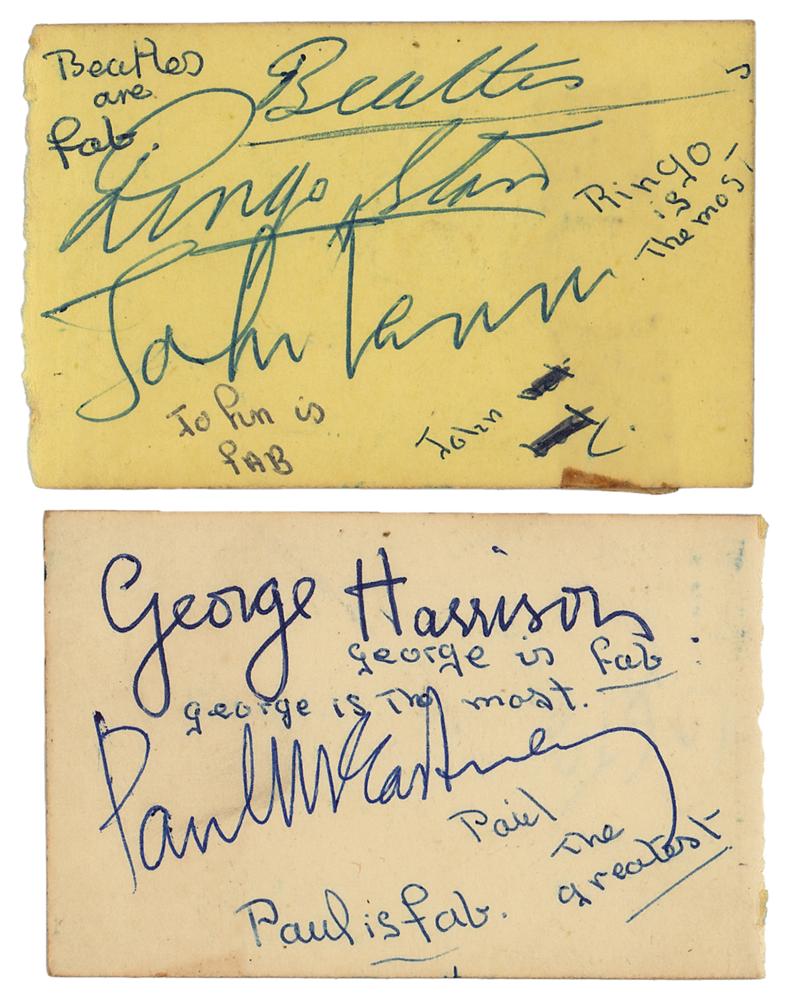 Beatles
are
fab.
Beatles
Ringo Starr
Ringo
is
the most
John Lennon
John is
fAB
John
George Harrison
george is fab.
george is the most.
Paul McCartney
Paul
the
greatest
Paul is fab.